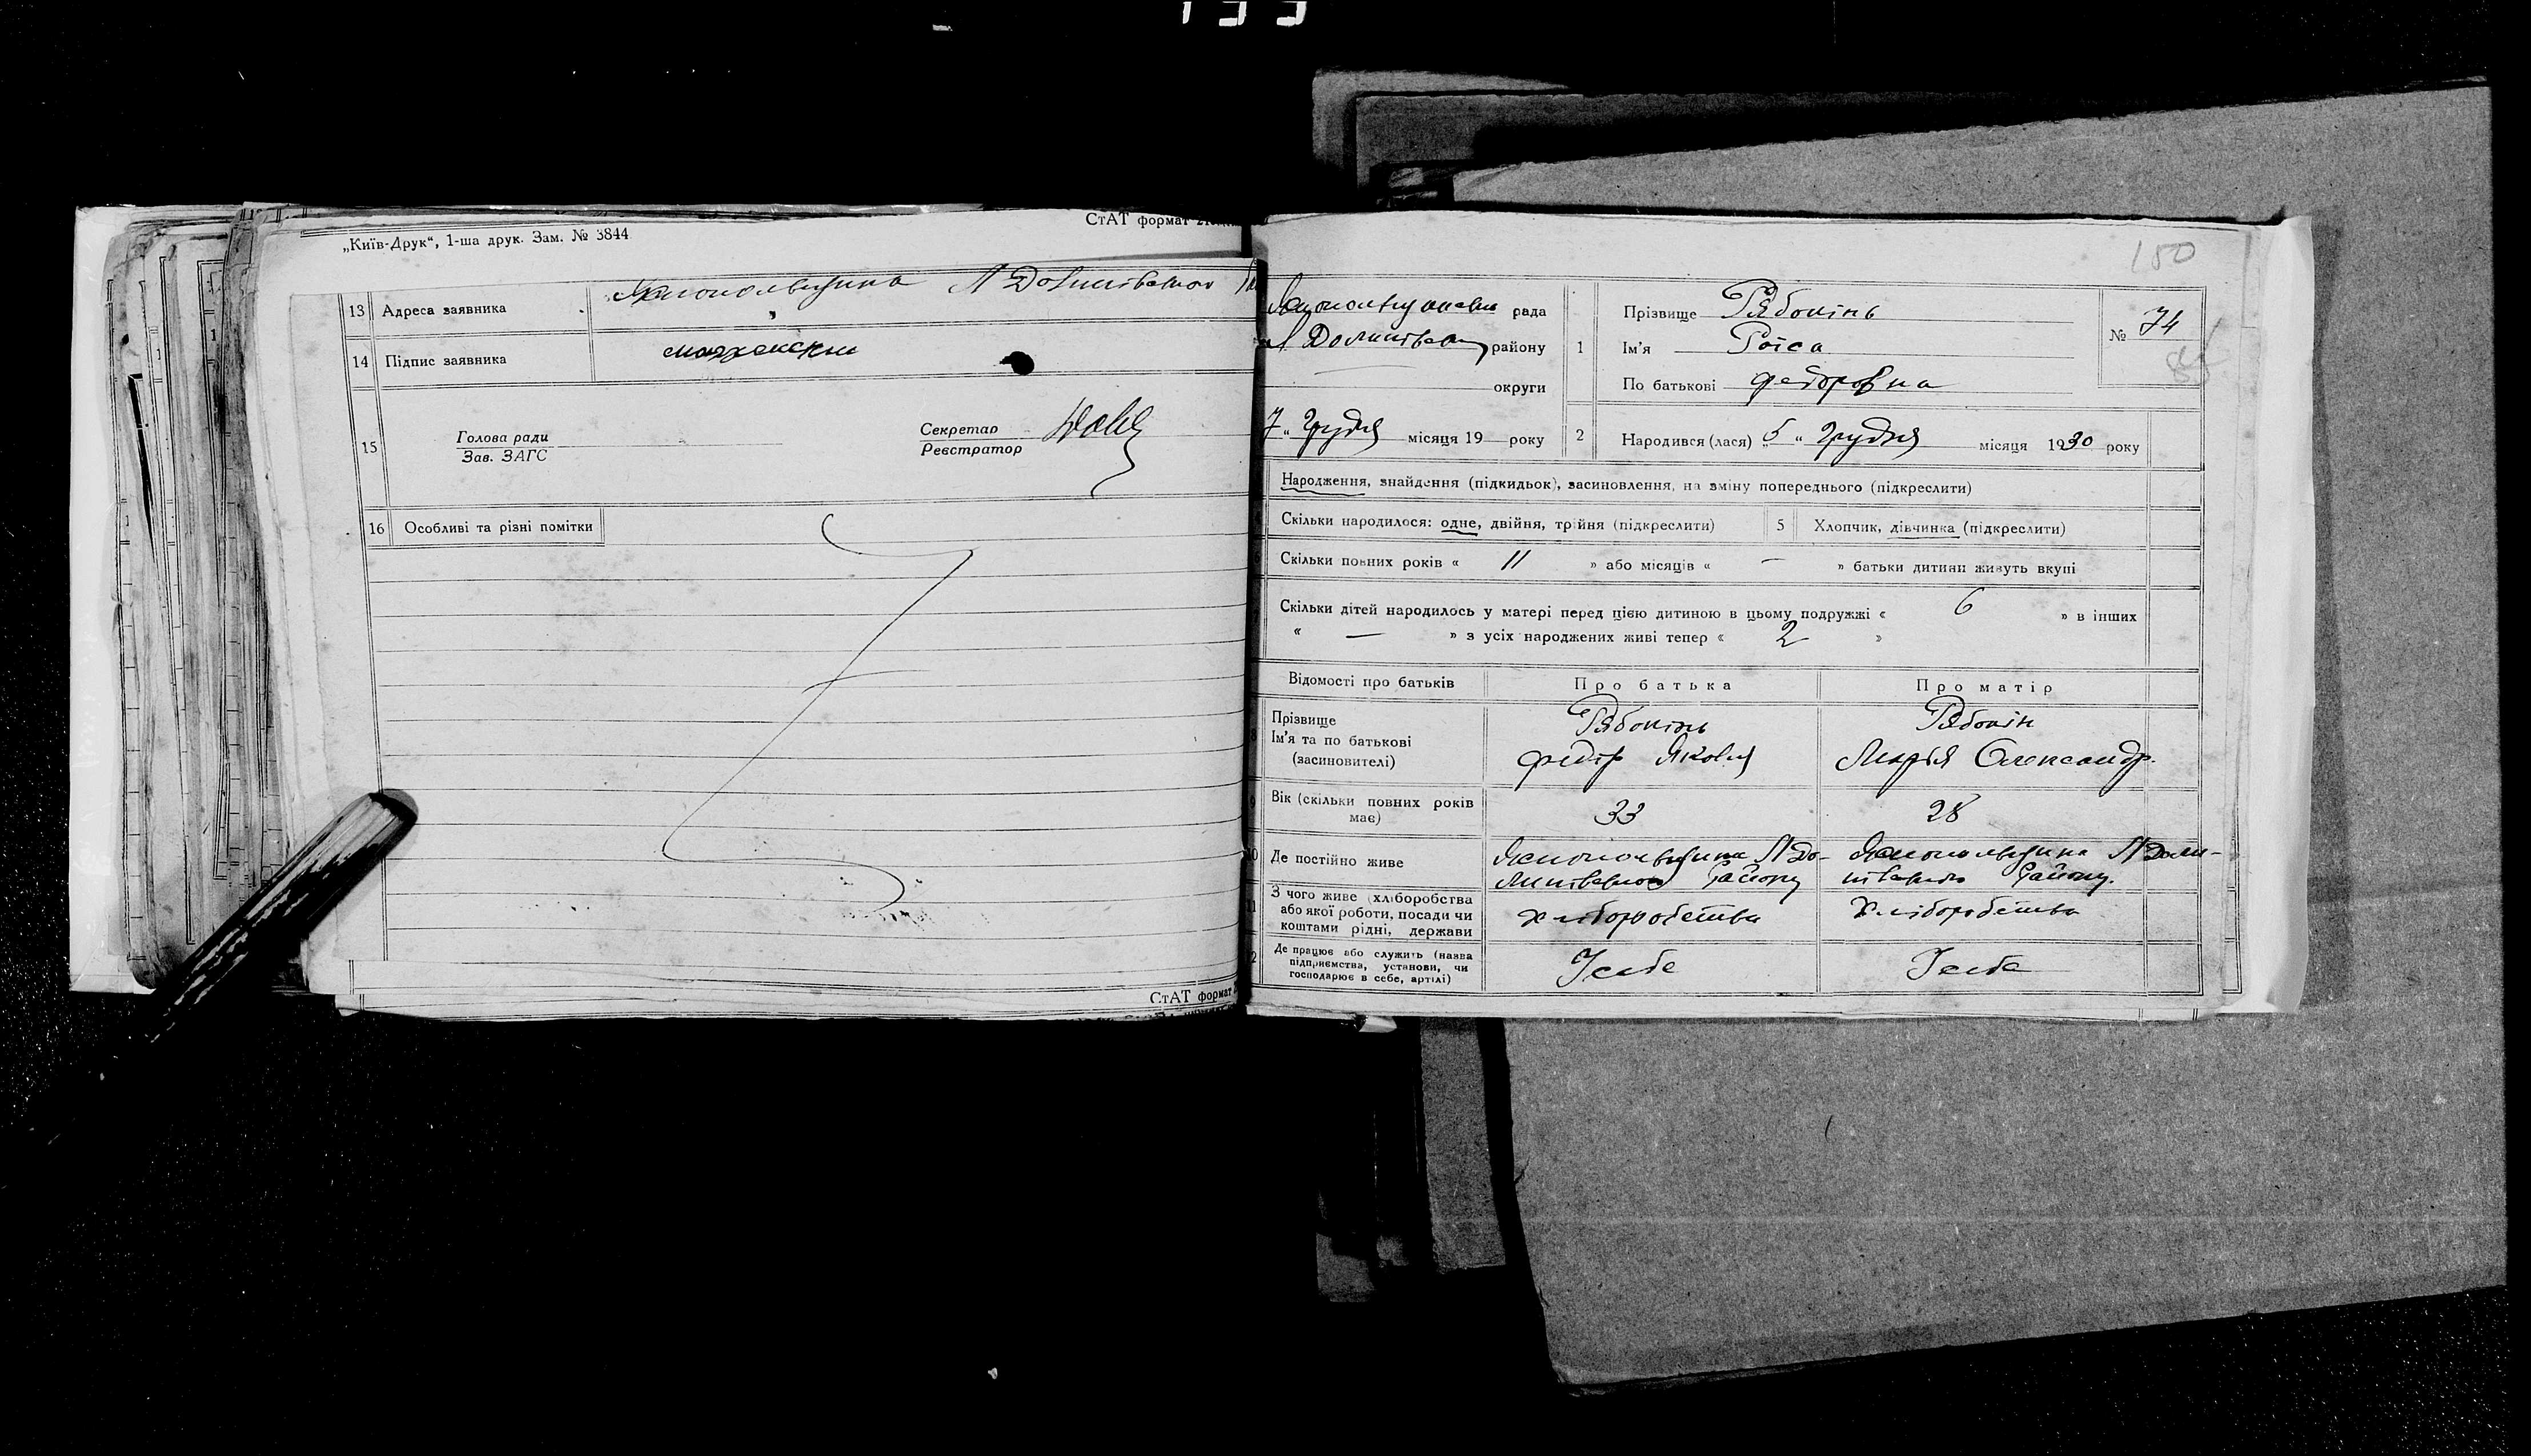 „Київ-Друк“, 1-ша друк. Зам. № 3844
СтАТ формат
13 Адреса заявника
14 Підпис заявника
15 Голова ради
Зав. ЗАГС
Секретар
Реєстратор
16 Особливі та різні помітки
СтАТ формат
150
рада
району
округи
7 „ Грудня місяця 19 року
1 Прізвище Рябокінь
Ім'я Роїса
По батькові Федоровна
№ 74
2 Народився (лася) „ 5 „ Грудня місяця 1930 року
Народження, знайдення (підкидьок), засиновлення, на зміну попереднього (підкреслити)
Скільки народилося: одне, двійня, трійня (підкреслити) 5 Хлопчик, дівчинка (підкреслити)
Скільки повних років « 11 » або місяців « — » батьки дитини живуть вкупі
Скільки дітей народилось у матері перед цією дитиною в цьому подружжі « 6 » в інших
« — » з усіх народжених живі тепер « 2 »
Відомості про батьків Про батька Про матір
Прізвище Рябокінь Рябокін
Ім'я та по батькові
(засиновителі) Федір Яковл Марія Олександр.
Вік (скільки повних років
має) 33 28
10 Де постійно живе
Району Району.
З чого живе (хліборобства
або якої роботи, посади чи
коштами рідні, держави хліборобства Хліборобства
Де працює або служить (назва
підприємства, установи, чи
господарює в себе, артілі) У себе У себе